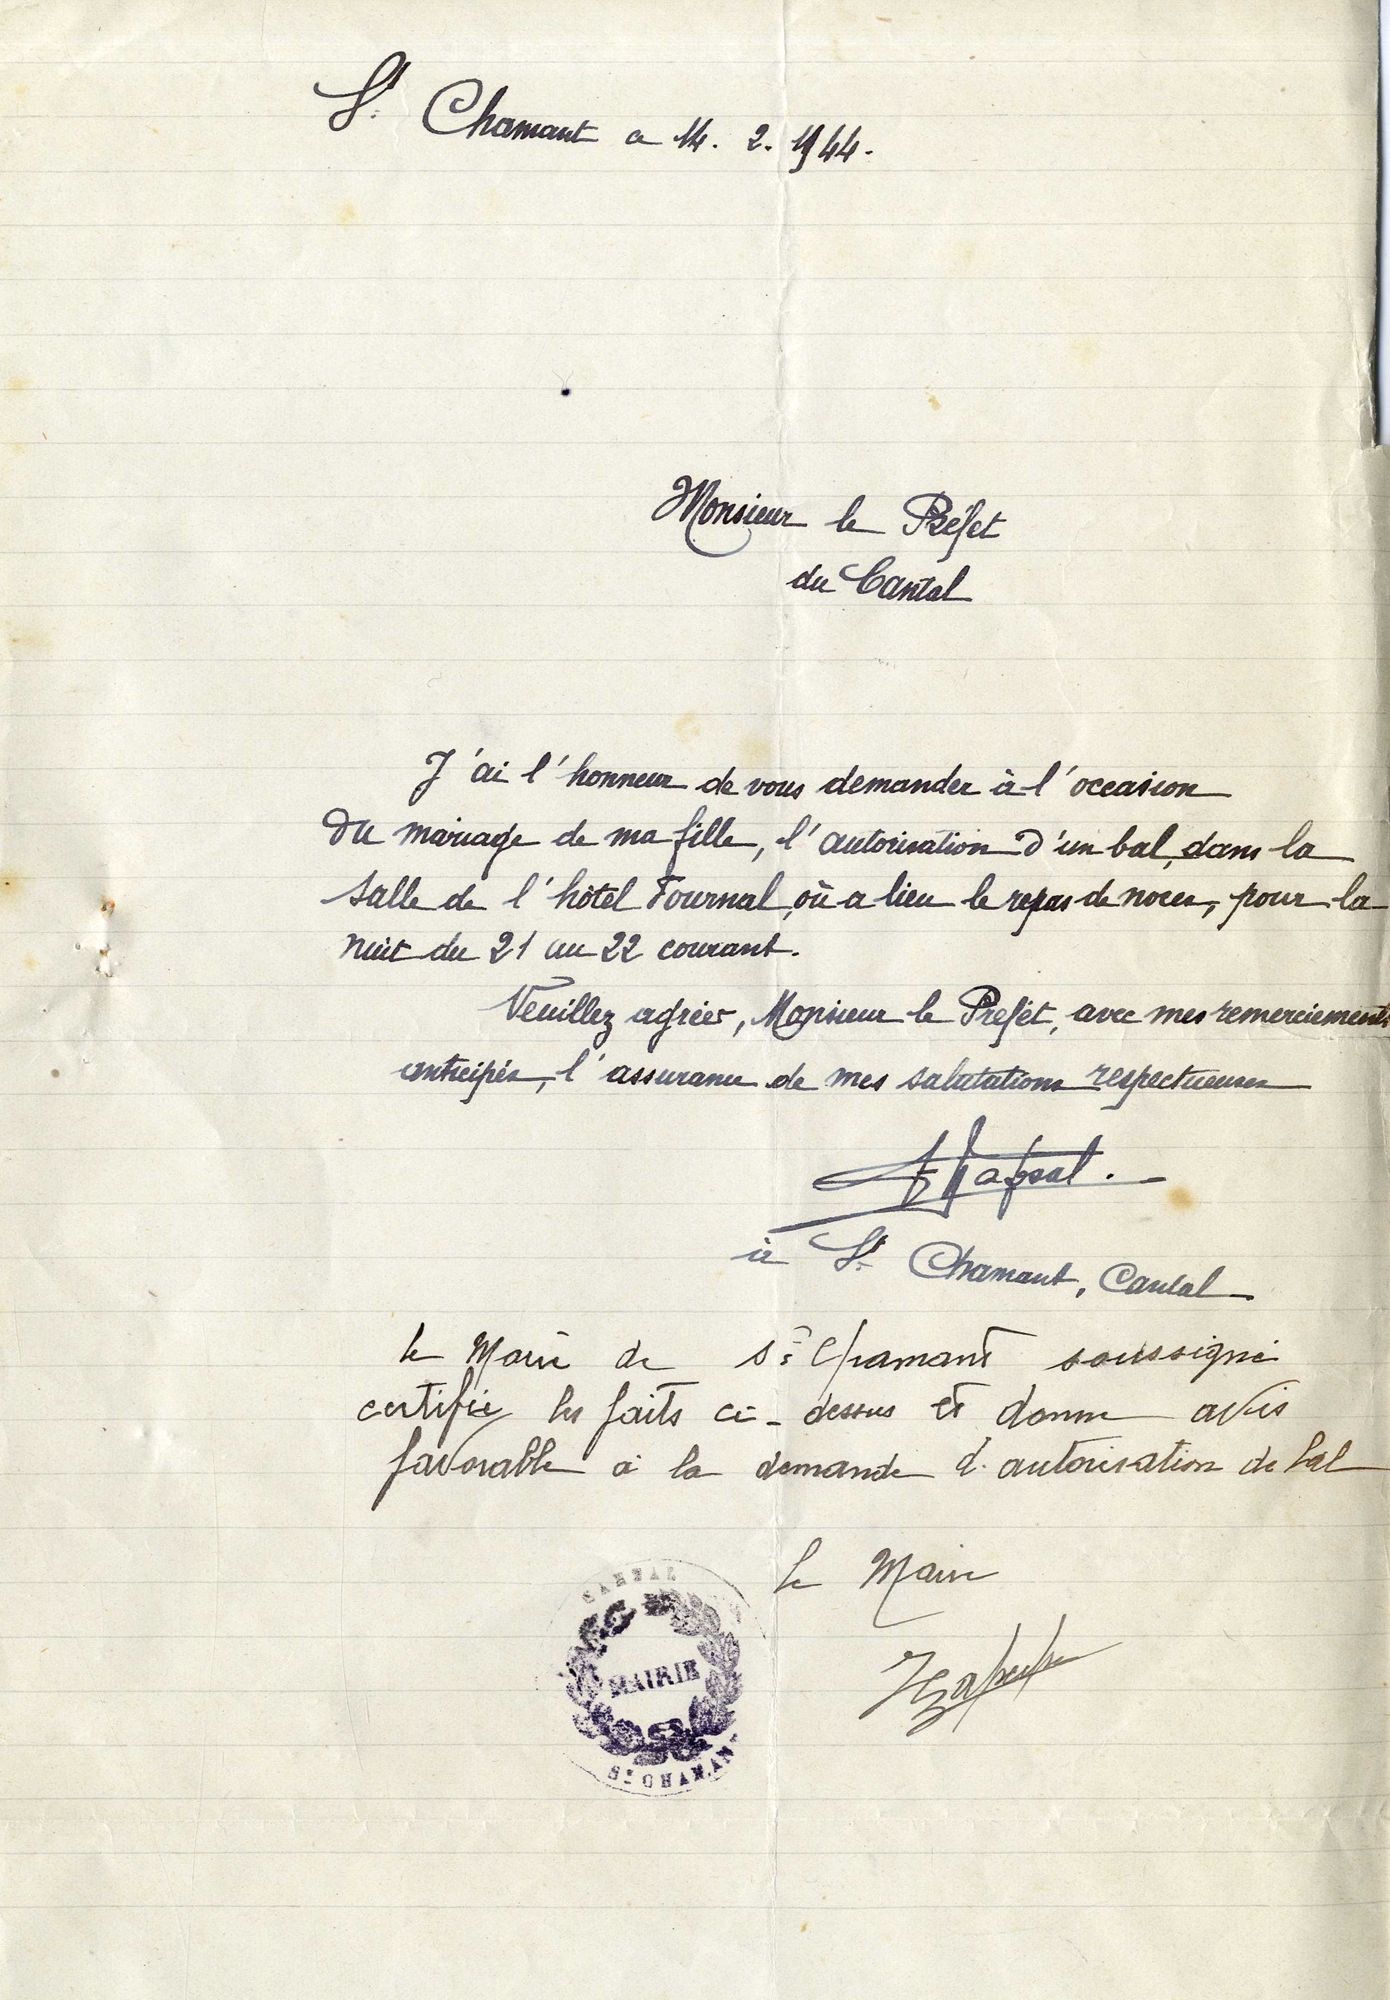 St Chamant a 14. 2. 1944.
Monsieur le Préfet
du Cantal
J'ai l'honneur de vous demander à l'occasion
du mariage de ma fille, l'autorisation d'un bal, dans la
salle de l'hôtel Tournal, où a lieu le repas de noces, pour la
nuit du 21 au 22 courant.
Veuillez agréer, Monsieur le Préfet, avec mes remerciements
anticipés, l'assurance de mes salutations respectueuses
à St Chamant, Cantal
le Maire de St Chamant soussigné
certifie les faits ci-dessus et donne avis
favorable à la demande d'autorisation de bal
le Maire
CANTAL
MAIRIE
St CHAMANT